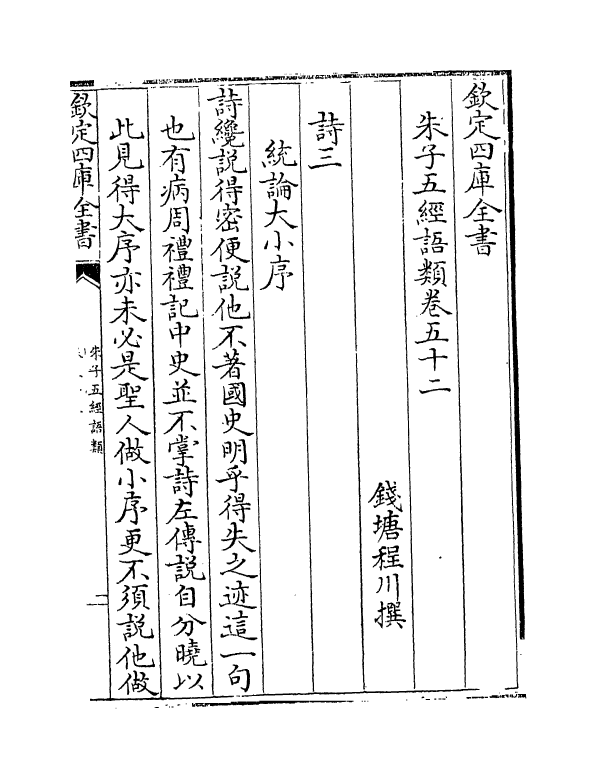 欽定四庫全書
朱子五經語類卷五十二
錢塘程川撰
詩三
統論大小序
詩纔説得密便説他不著國史明乎得失之迹這一句
也有病周禮禮記中史並不掌詩左傳説自分曉以
此見得大序亦未必是聖人做小序更不須説他做
欽定四庫全書
朱子五經語類
一